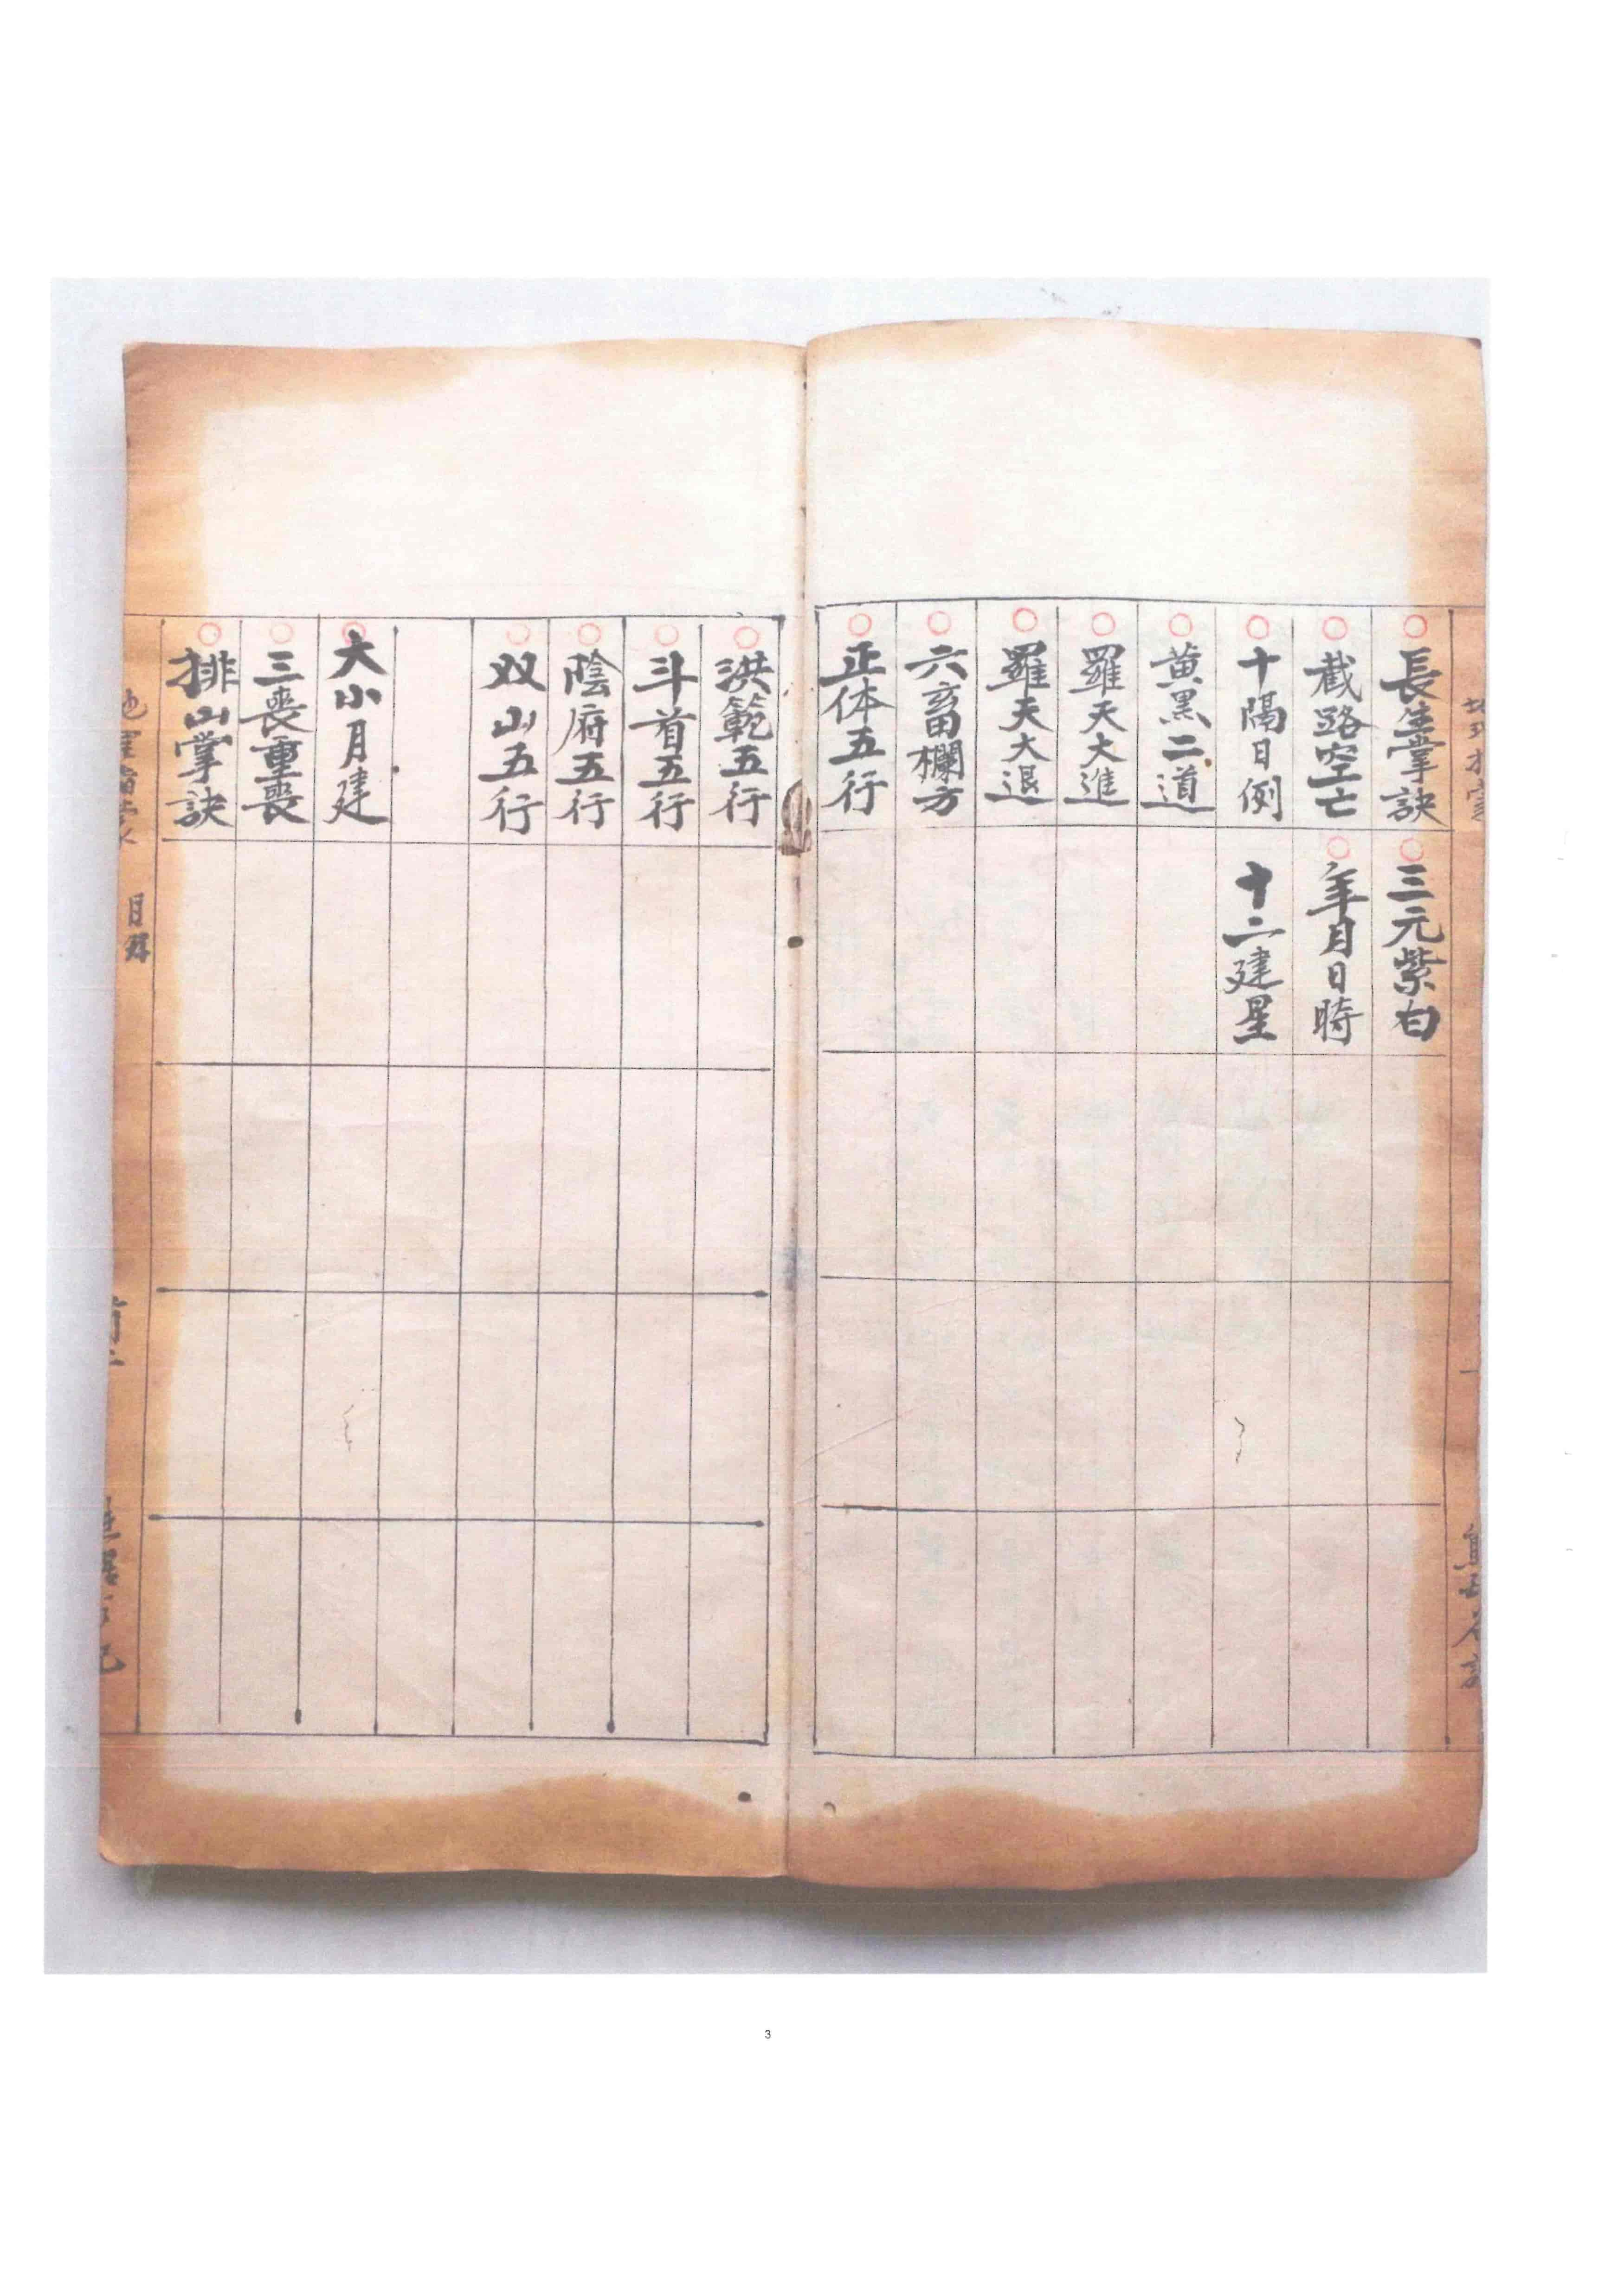 長生掌訣
截路空亡
十隔日例
黄黑二道
羅天大進
羅天大退
六畜欄方
正体五行
三元紫白
年月日時
十二建星
洪範五行
斗首五行
陰府五行
双山五行
大小月建
三喪重喪
排山掌訣
目录
3